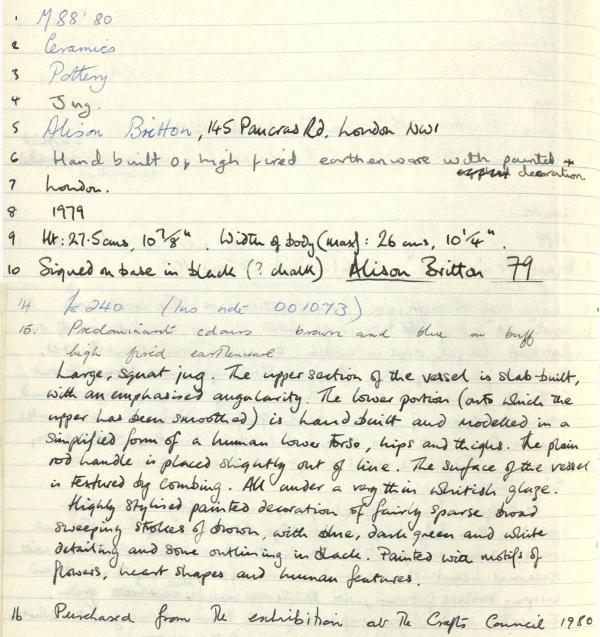 1 M 88'80
2 Ceramics
3 Pottery
4 Jug.
5 Alison Britton, 145 Pancras Rd, London NW1
6 Hand built of high fired earthenware with painted +
decoration
7 London.
8 1979
9 Ht: 27.5 cms, 10 7/8". Width of body (max): 26 cms, 10 1/4".
10 Signed on base in black (? chalk) Alison Britton 79
14 £240 (Ins note 001073)
15. Predominant colours brown and blue on buff
high fired earthenware
Large, squat jug. The upper section of the vessel is slab-built,
with an emphasised angularity. The lower portion (onto which the
upper has been smoothed) is hand built and modelled in a
simplified form of a human lower torso, hips and thighs. The plain
rod handle is placed slightly out of line. The surface of the vessel
is textured by combing. All under a very thin whitish glaze.
Highly stylised painted decoration of fairly sparse broad
sweeping strokes of brown, with blue, dark green and white
detailing and some outlining in black. Painted with motifs of
flowers, heart shapes and human features.
16 Purchased from the exhibition at The Crafts Council 1980